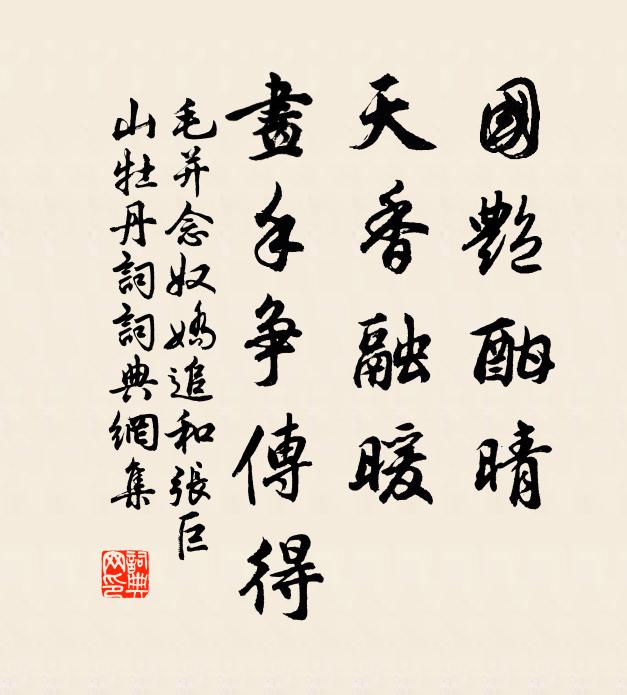 國艷酣晴
天香融暖
畫手爭傳得
毛并念奴嬌追和張巨
山牡丹詞詞典網集
詞典
網印